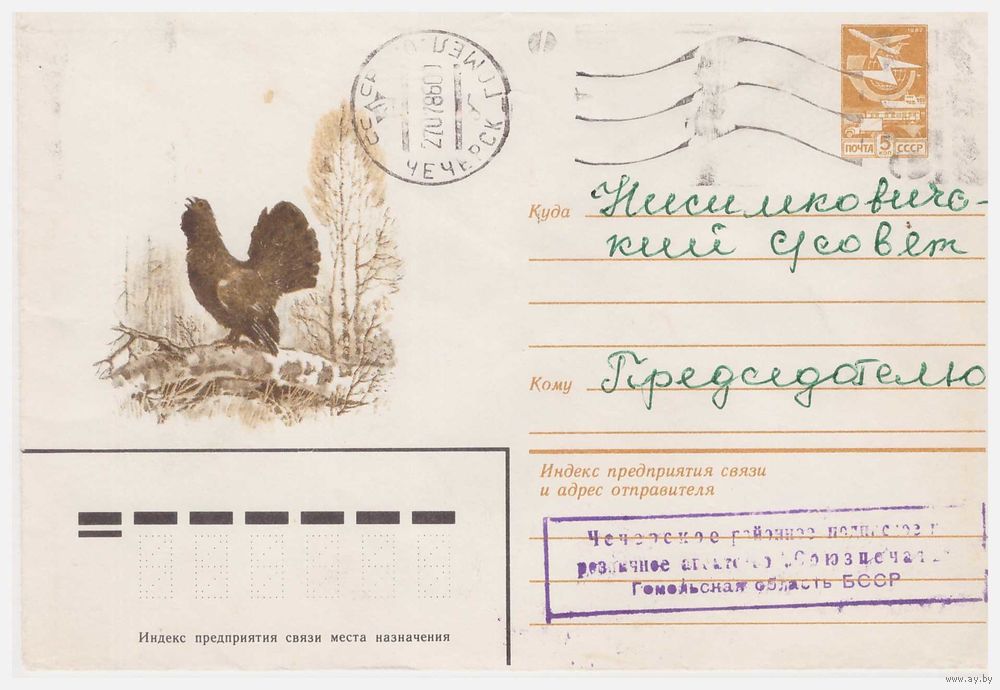 ЧЕЧЕРСК ГОМЕЛ. О
270786
1982
ПОЧТА 5 КОП СССР
Куда Нисимковичс-
кий с/совет
Кому Председателю
Индекс предприятия связи
и адрес отправителя
Чечерское районное
розничное агентство "Союзпечать"
Гомельская область БССР
Индекс предприятия связи места назначения
www.ay.by